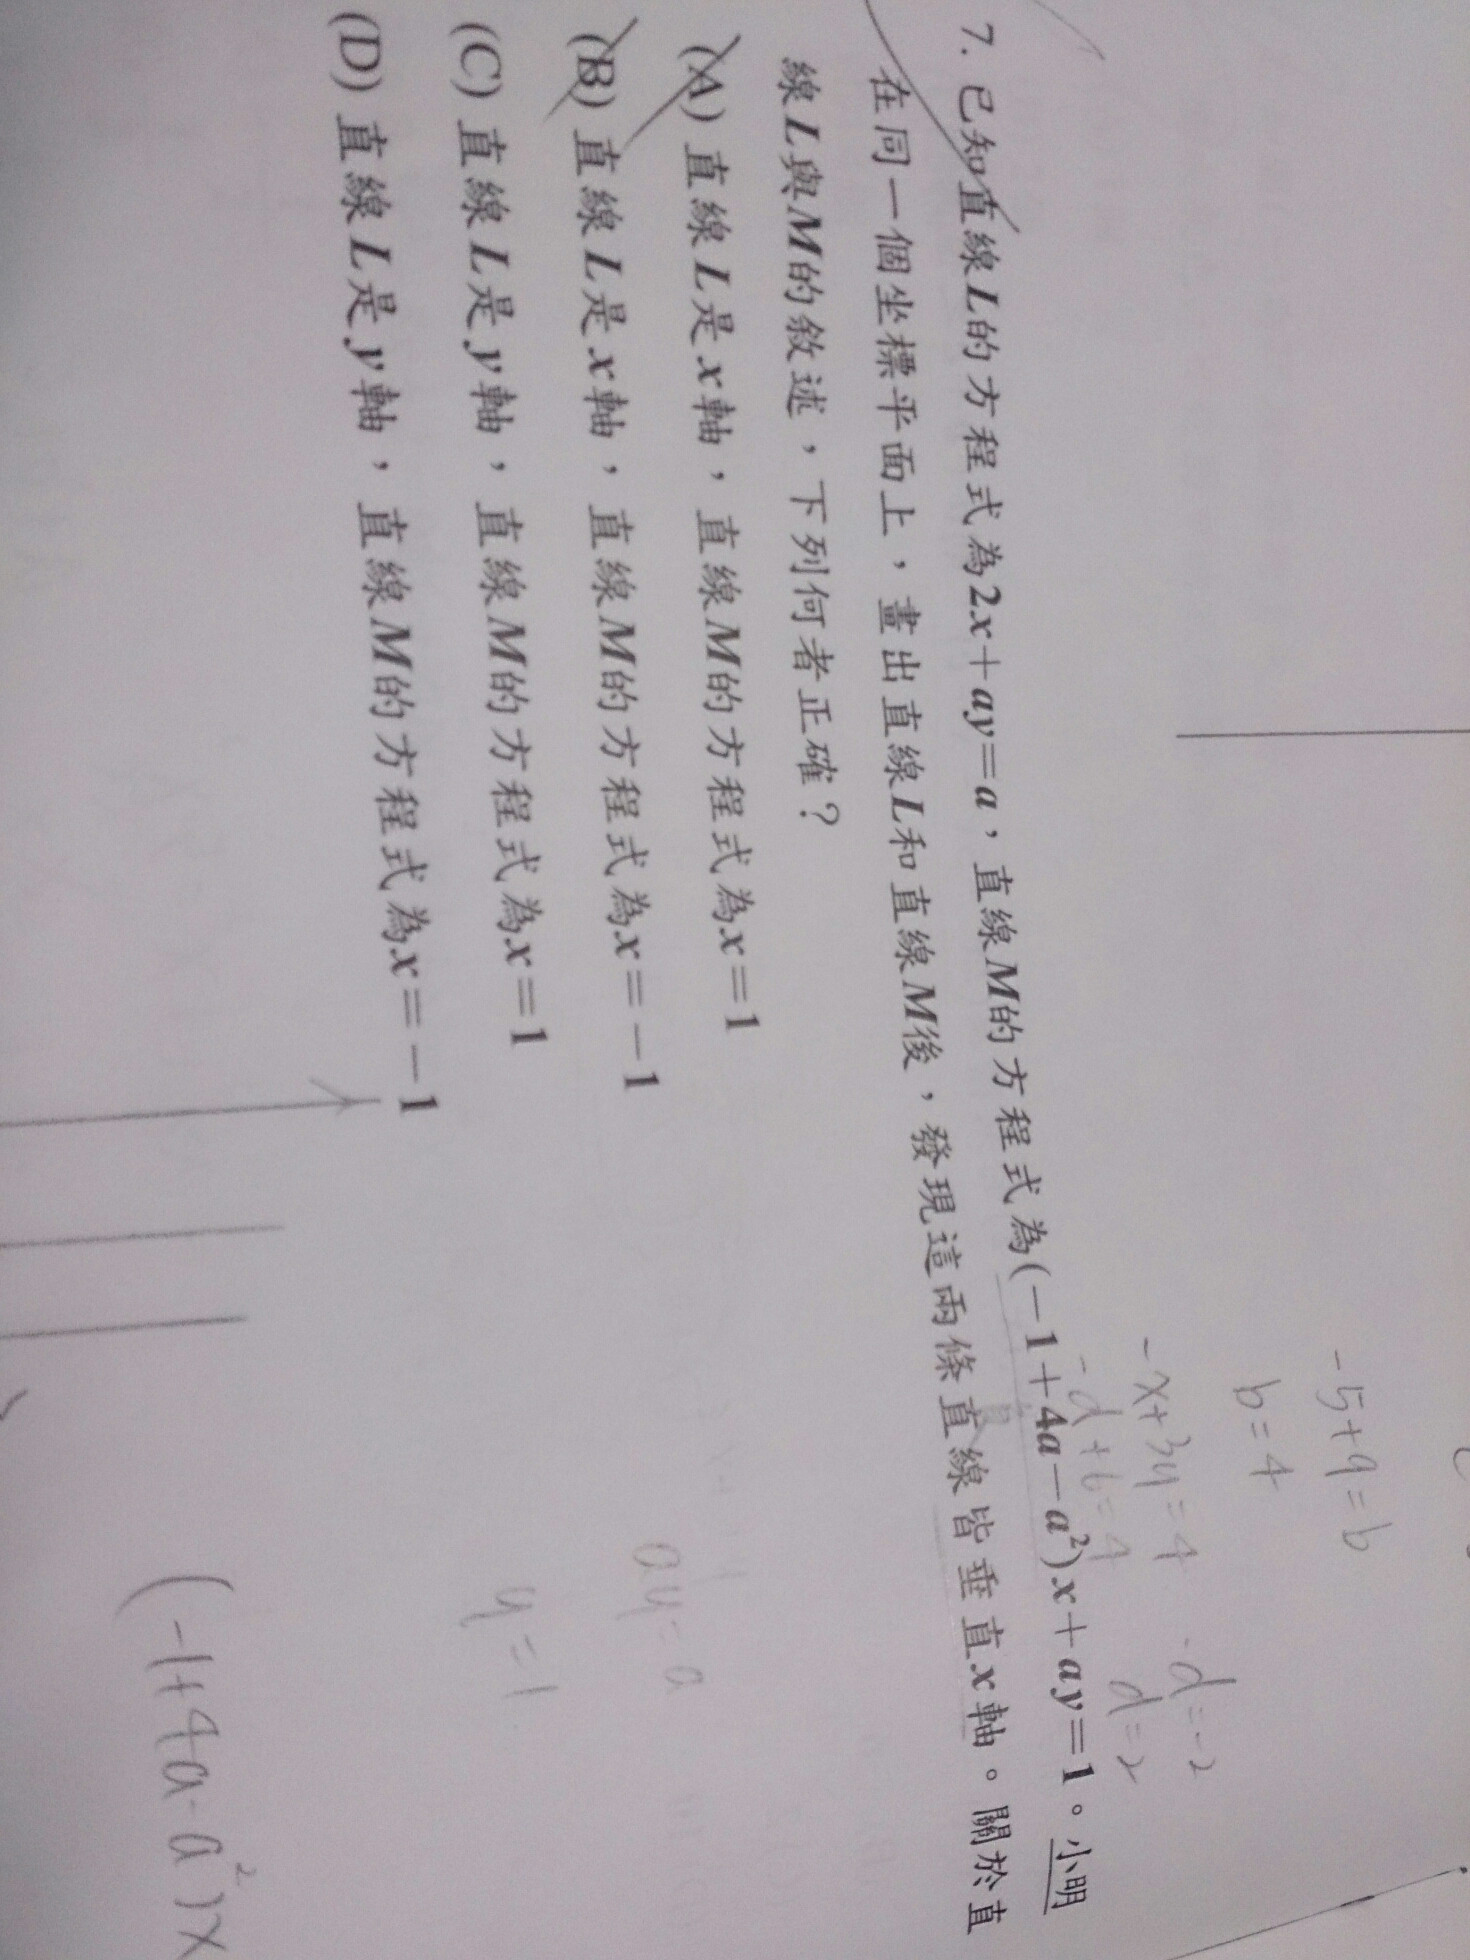 7. 已知直線L的方程式為2x+ay=a，直線M的方程式為(-1+4a-a²)x+ay=1。小明
在同一個坐標平面上，畫出直線L和直線M後，發現這兩條直線皆垂直x軸。關於直
線L與M的敘述，下列何者正確？
(A) 直線L是x軸，直線M的方程式為x=1
(B) 直線L是x軸，直線M的方程式為x=-1
(C) 直線L是y軸，直線M的方程式為x=1
(D) 直線L是y軸，直線M的方程式為x=-1
-5+9=b
b=4
-x+3y=4
-d+6=4
-d=-2
d=2
ay=a
y=1
(-1+4a-a²)x